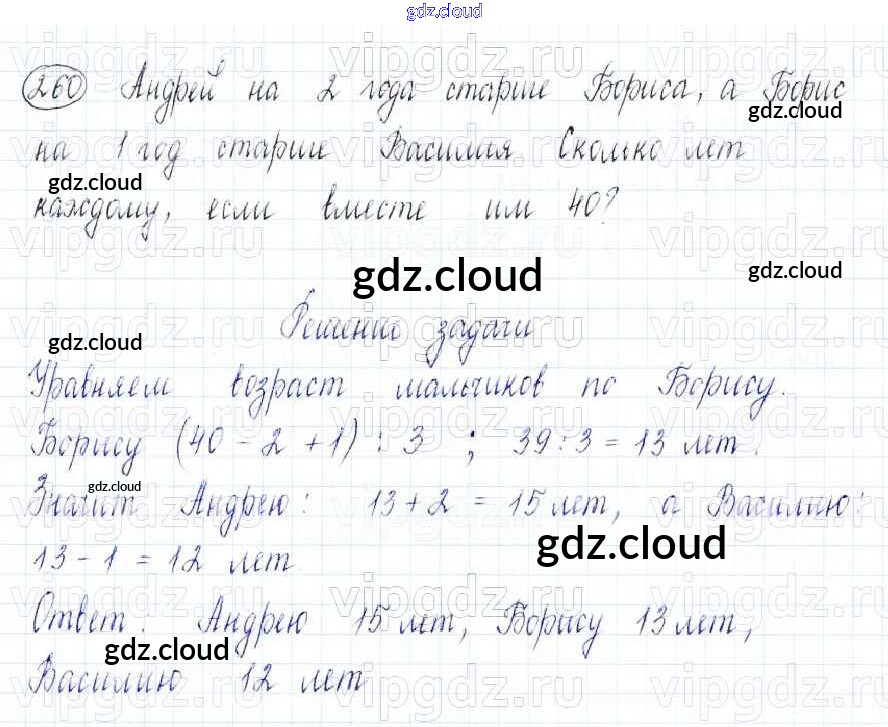 gdz.cloud
260 Андрей на 2 года старше Бориса, а Борис
gdz.cloud
gdz.cloud
на 1 год старше Василия Сколько лет
gdz.cloud
каждому, если вместе им 40?
gdz.cloud
gdz.cloud
Решение задачи
gdz.cloud
Уравняем возраст мальчиков по Борису.
Борису (40 - 2 + 1) : 3 ; 39 : 3 = 13 лет.
gdz.cloud
Значит Андрею: 13 + 2 = 15 лет, а Василию:
13 - 1 = 12 лет
gdz.cloud
Ответ: Андрею 15 лет, Борису 13 лет,
gdz.cloud
Василию 12 лет
vipgdz.ru